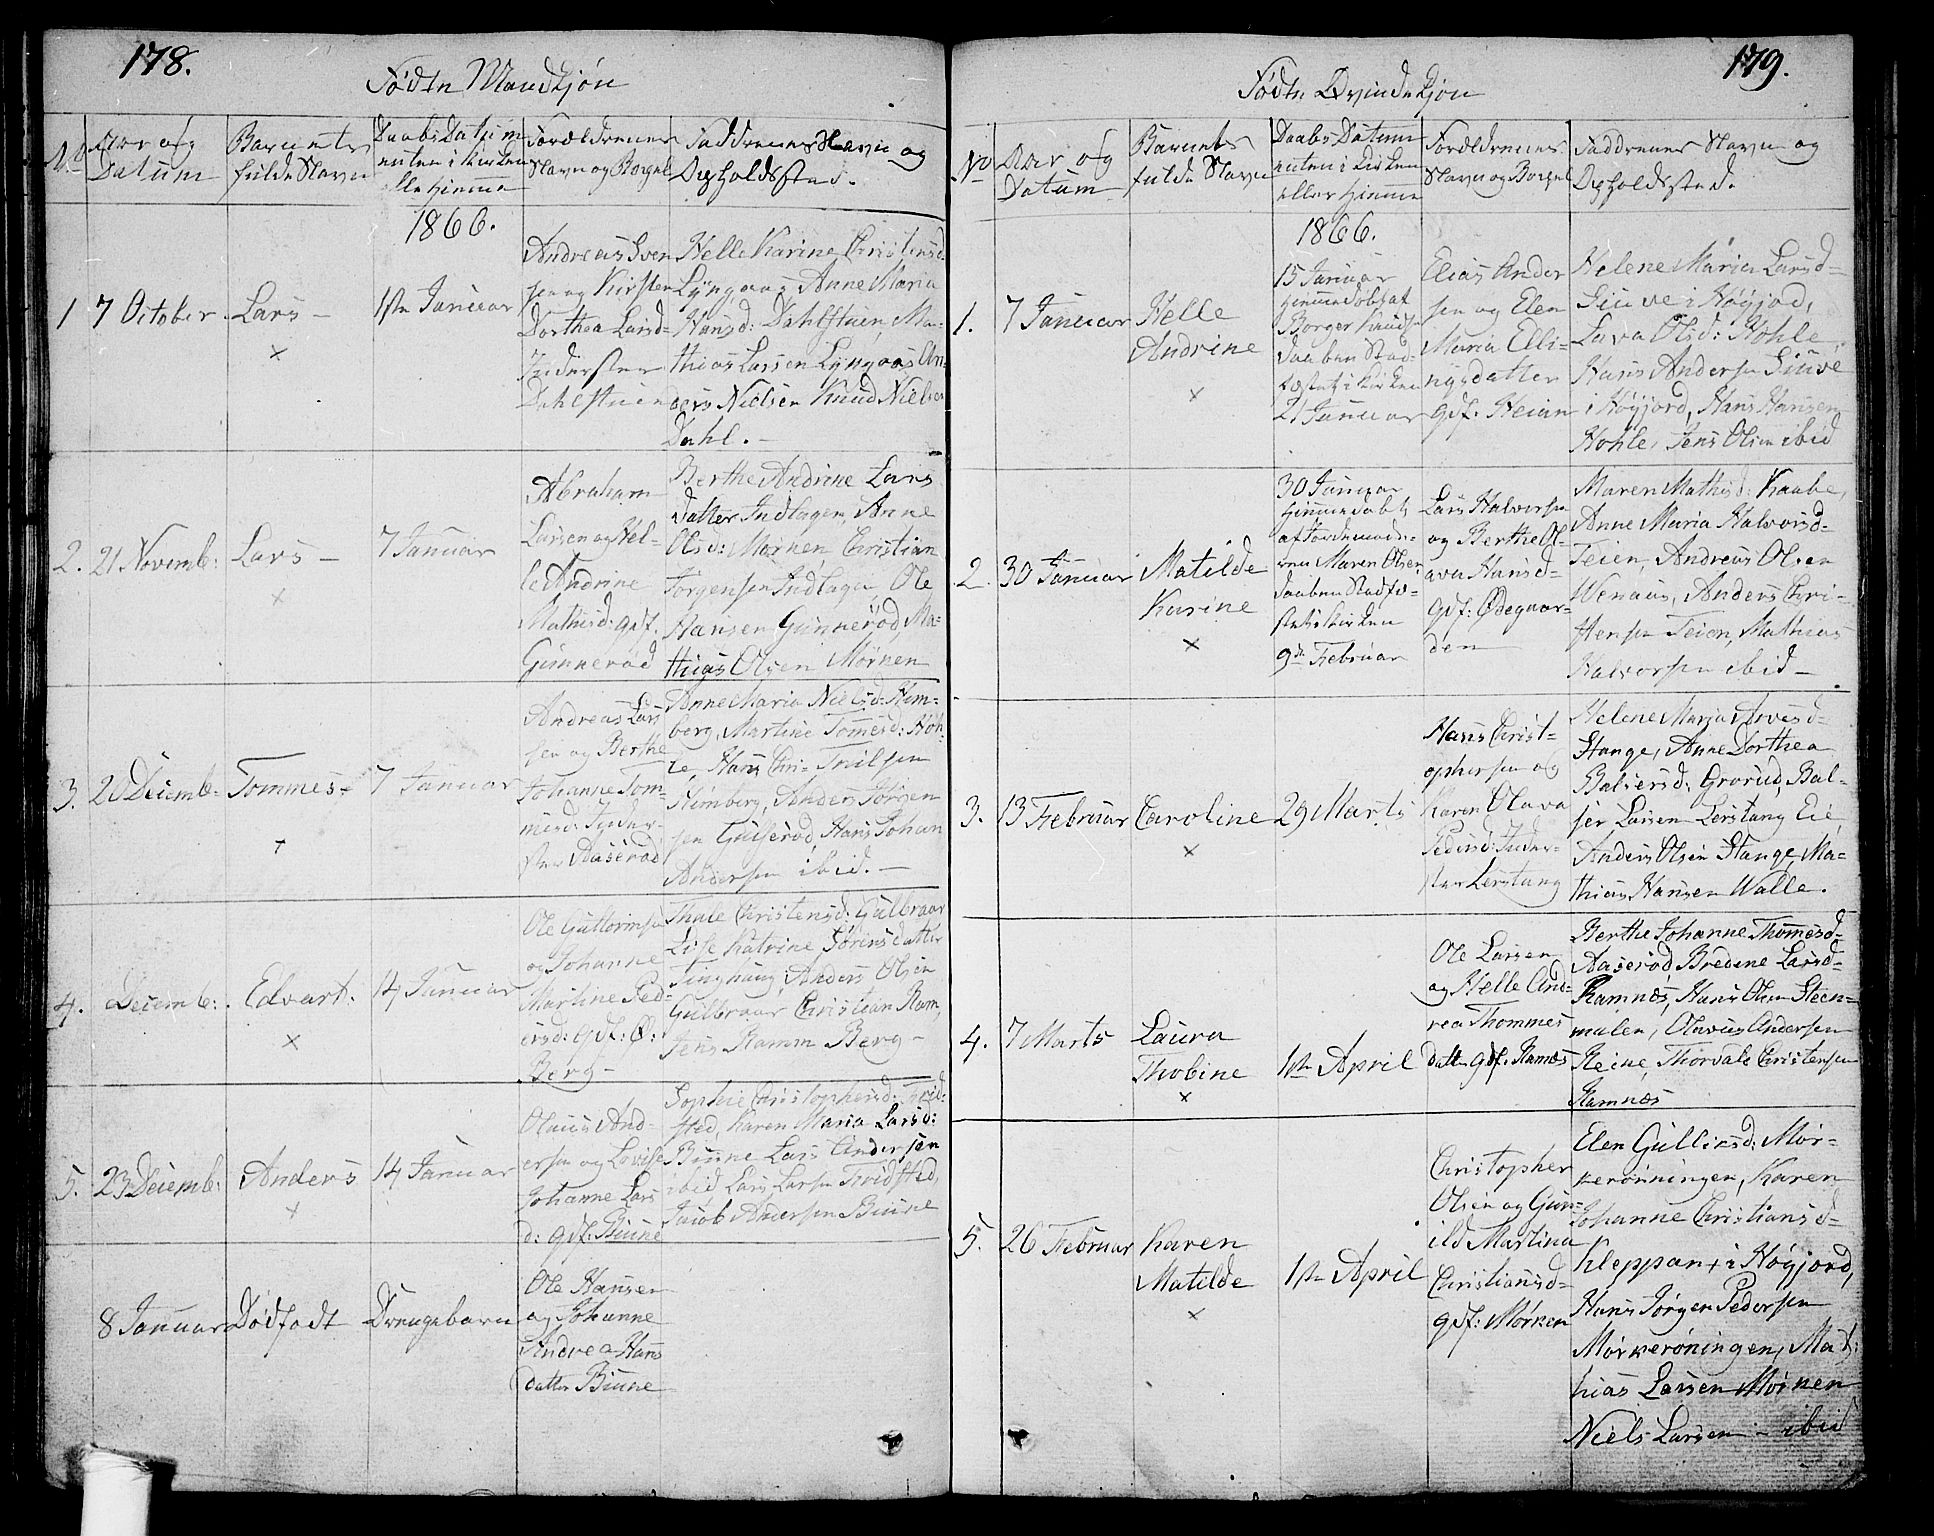 178.
Fødte Mandkjøn
No
Aar og
Datum
Barnets
fulde Navn
Daabs Datum
enten i Kirken
elle hjemme
Forældrenes
Navn og Borgel
Faddrenes Navn og
Opholdssted.
1866.
1
7 October
Lars –
×
1ste Januar
Andreas Iver
sen og Kirsten
Dorthea Larsd-
Inderster
Dahlstuen
Helle Karine Christensd-
Lyngaas Anne Maria
Hansd: Dahlstuen, Ma-
thias Larsen Lyngaas An-
ders Nielsen Knud Nielsen
Dahl. –
2.
21 Novemb:
Lars –
×
7 Januar
Abraham
Larsen og Hel-
le Andrine
Mathisd: gdf.
Gunnerød
Berthe Andrine Lars
datter Indlagen, Anne
Olsd: Mørken Christian
Jørgensen Indlagen, Ole
Hansen Gunnerød, Ma-
thias Olsen Mørken
3.
2 Decemb-
Tommes –
+
7 Januar
Andreas Lar
sen og Berthe
Johanne Tom-
mesd: Inder-
ster Aaserød
Anne Maria Nielsd: Him-
berg, Martine Tommesd: Hoh-
le, Hans Chri- Truilsen
Himberg, Anders Jørgen
sen Gulserød, Hans Johan
Andersen ibid. –
4.
Decemb:
Edvart.
×
14 Januar
Ole Guttormsen
og Johanne
Martine Ped-
ersd: gdf: Ø:
Berg –
Thale Christensd: Gulbraar
Lise Katrine Sørensdatter
Tinghaug, Anders Olsen
Gulbraar Christian Ram,
Jens Ramm Berg –
5.
23 Decemb:
Anders
×
14 Januar
Olaus And-
ersen og Lovise
Johanne Lars
d: gdf: Biune
Sophie Christophersd: Tvid-
sted, Karen Maria Larsd:
Biune Lars Andersen
ibid Lars Larsen Tvidsted,
Jacob Andersen Biune
8 Januar
Dødfødt
Drengebarn
Ole Hansen
og Johanne
Andrea Hans
datter Biune
179.
Fødte Qvindekjøn
No
Aar og
Datum
Barnets
fulde Navn
Daabs Datum
enten i Kirken
eller hjemme
Forældrenes
Navn og Borgel
Faddrenes Navn og
Opholdssted.
1866.
1.
7 Januar
Helle
Andrine
×
15 Januar
hjemmedøbt af
Borger Knudsen
Daaben Stad-
fæstet i Kirken
21 Januar
Elias Ander
sen og Elen
Maria Elli-
ngsdatter
gdf: Heian
Helene Maria Larsd-
Giuve i Høyjord,
Lava Olsd: Hohle,
Hans Andersen Giuve
i Høyjord, Hans Hansen
Hohle, Jens Olsen ibid
2.
30 Januar
Matilde
Karine
×
30 Januar
hjemmedøbt
af Jordemode-
ren Maren Olsen
Daaben Stadfæ-
stet i Kirken
9de Februar
Lars Halvorsen
og Berthe Ol-
ava Hansd-
gdf: Ødegaar-
den
Maren Mathisd: Kaabe,
Anne Maria Halvorsd-
Teien, Andreas Olsen
Wenaas, Anders Chri-
stensen Teien, Mathias
Halvorsen ibid –
3.
13 Februar
Caroline
×
29 Marts
Hans Christ-
ophersen og
Karen Olava
Pedersd: Inder-
ster Lerstang
Helene Maria Arvesd-
Stange, Anne Dorthea
Balsersd: Grorud, Bal-
ser Larsen Lerstang Eie,
Anders Olsen Stange, Ma-
thias Hansen Walle.
4.
7 Marts
Laura
Thobine
×
1ste April
Ole Larsen
og Helle And-
rea Thommes
datter gdf. Ramnæs
Berthe Johanne Thomesd-
Aaserød, Bredine Larsd-
Ramnæs, Hans Olsen Steen-
malen, Olavus Andersen
Reine, Thorvald Christensen
Ramnæs
5.
26 Februar
Karen
Matilde
×
1ste April
Christopher
Olsen og Gun-
ild Martina
Christiansd-
gdf: Mørken
Elen Gulliksd: Mør-
kerønningen, Karen
Johanne Christiansd-
Kleppan i Høyjord,
Hans Jørgen Pedersen
Mørkerøningen, Mat:
hias Larsen Mørken
Niels Larsen – ibid